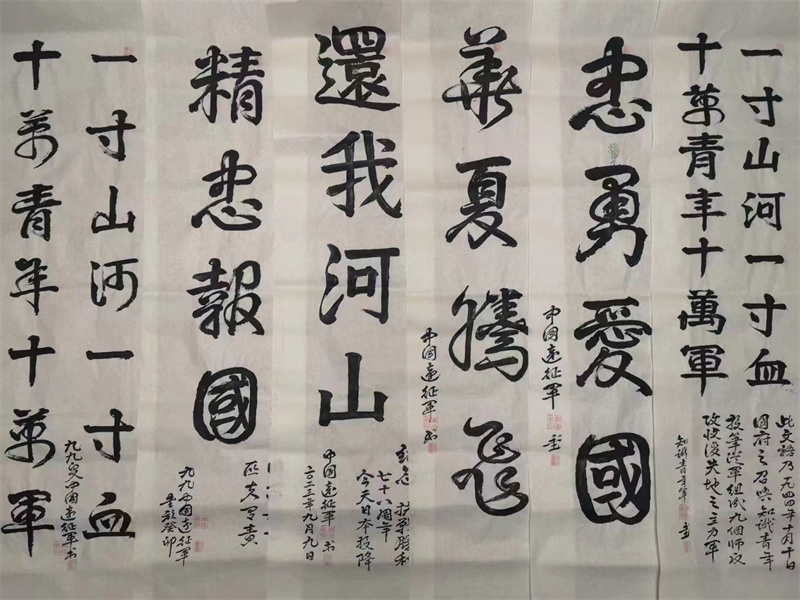 一寸山河一寸血
十萬青年十萬軍
國府之召喚知識青年
投筆從軍組成九個師
收復失地之主力軍
知識青年軍
忠勇愛國
中國遠征軍
華夏騰飛
中國遠征軍书
還我河山
抗戰勝利
七十八週年
今天日本投降
中國遠征軍书
二〇二三年九月九日
精忠報國
匹夫有責
九九中國遠征軍
癸卯
一寸山河一寸血
十萬青年十萬軍
九九叟中國遠征軍书